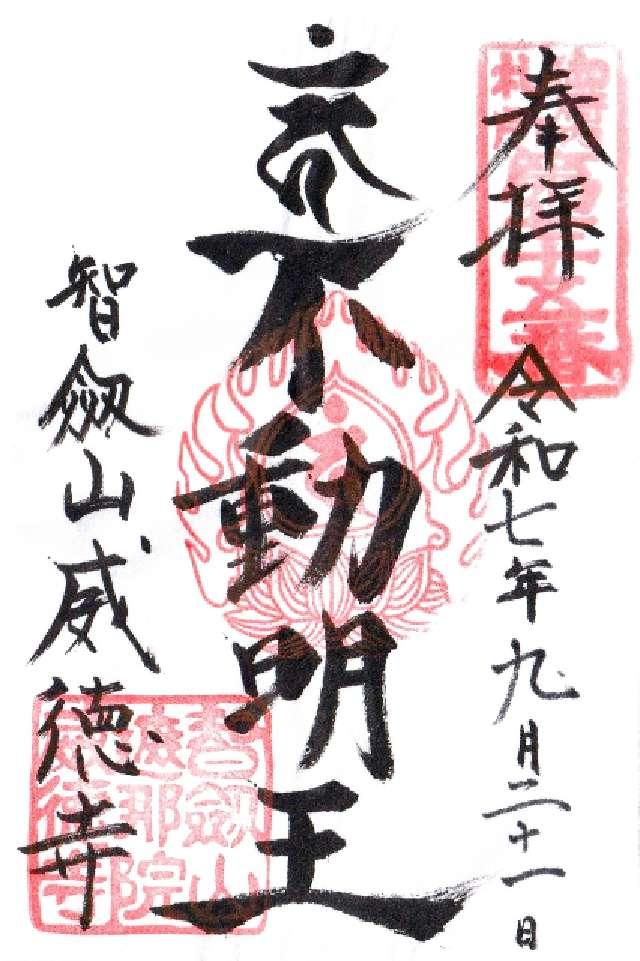 奉拝
令和七年九月二十一日
不動明王
智劔山威徳寺
智劔山
遮那院
威徳寺